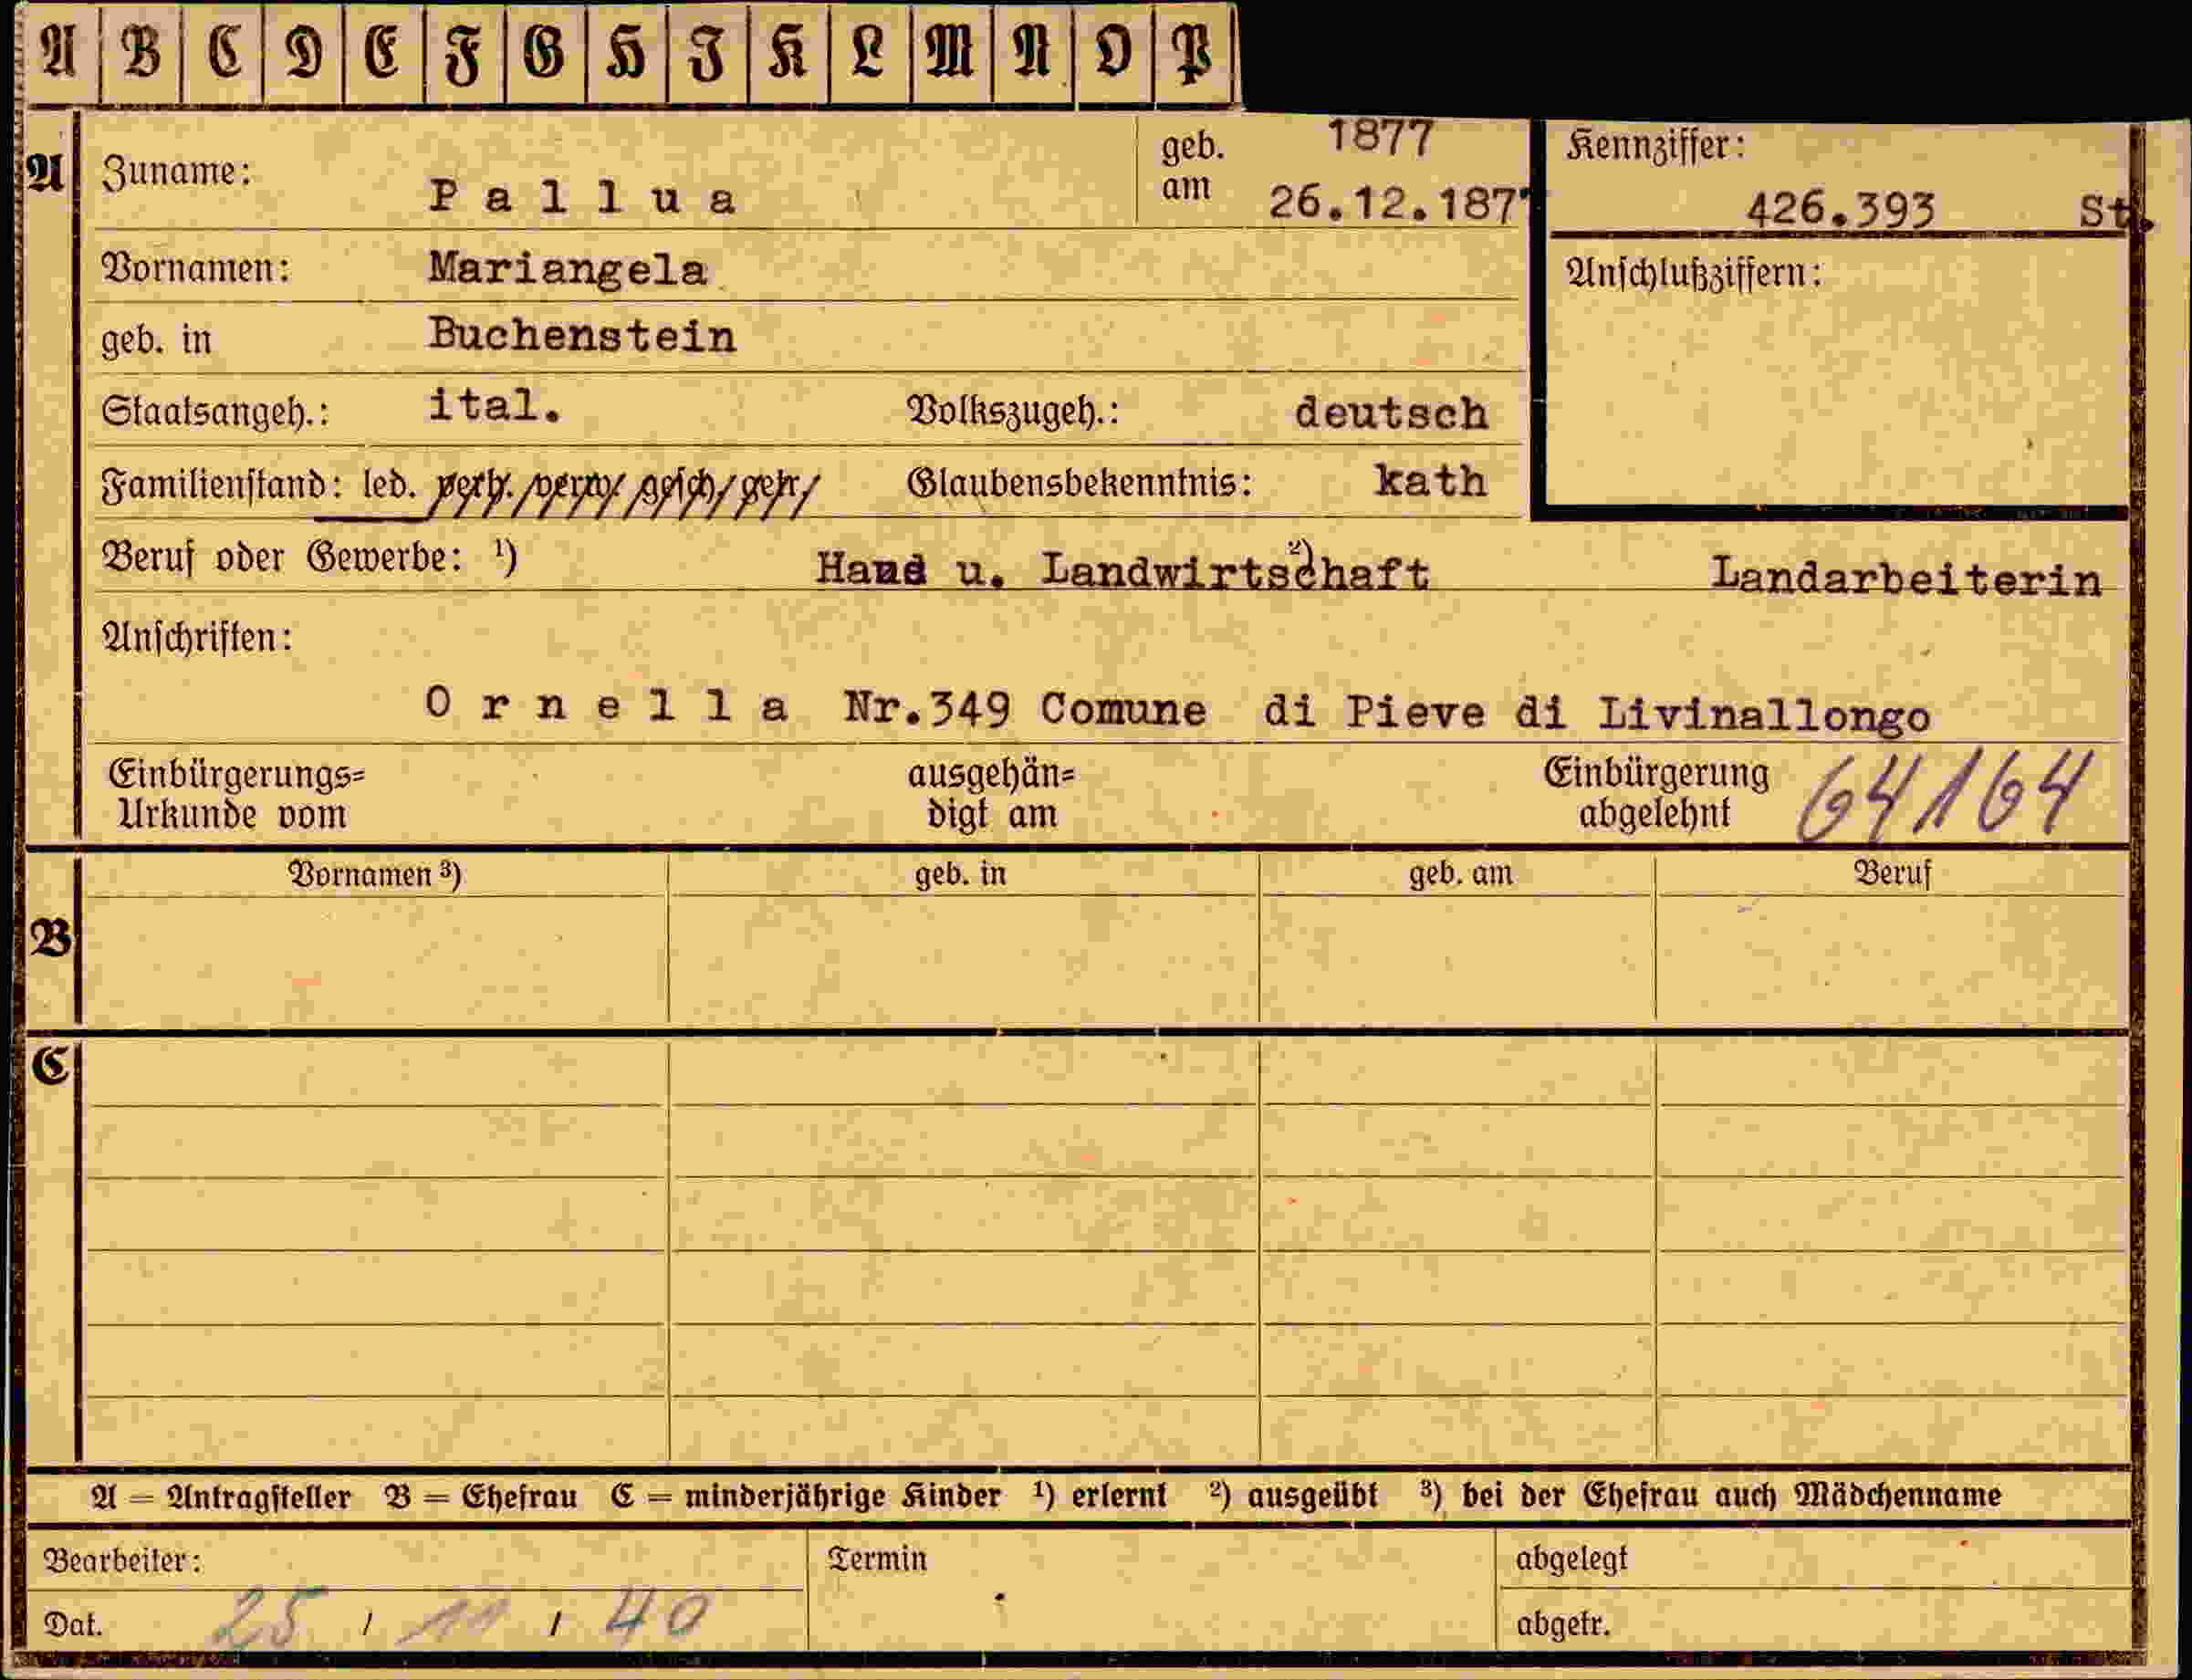 A B C D E F G H I K L M N O P
A Zuname: Pallua geb. am 1877 26.12.187 Kennziffer: 426.393 St.
Vornamen: Mariangela Anschlußziffern:
geb. in Buchenstein
Staatsangeh.: ital. Volkszugeh.: deutsch
Familienstand: led. verh. verw. gesch. getr. Glaubensbekenntnis: kath
Beruf oder Gewerbe: ¹) Haud u. Landwirtschaft ²) Landarbeiterin
Anschriften:
Ornella Nr.349 Comune di Pieve di Livinallongo
Einbürgerungs= ausgehän= Einbürgerung 64164
Urkunde vom digt am abgelehnt
Vornamen ³) geb. in geb. am Beruf
B
C
A = Antragsteller B = Ehefrau C = minderjährige Kinder ¹) erlernt ²) ausgeübt ³) bei der Ehefrau auch Mädchenname
Bearbeiter: Termin abgelegt
Dat. 25 / 11 / 40 abgetr.